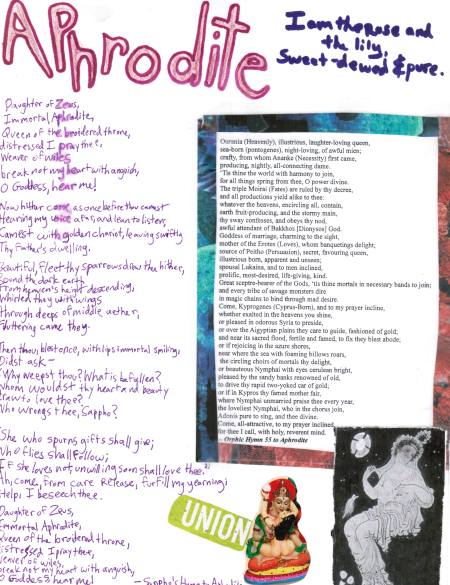 Aphrodite
I am the rose and
the lily,
Sweet-dewed & pure.
Daughter of Zeus,
Immortal Aphrodite,
Queen of the broidered throne,
distressed I pray thee,
Weaver of wiles
break not my heart with anguish,
O Goddess, hear me!
Now hither come, as once before thou camest
Hearing my voice afar, and lean to listen,
Camest with golden chariot, leaving swiftly
Thy Father's dwelling.
Beautiful, fleet thy sparrows drew thee hither,
Round the dark earth
From heaven's height descending,
Whirled they with wings
through deeps of middle aether,
Fluttering came they.
Then thou blest once, with lips immortal smiling,
Didst ask—
"Why weepst thou? What is befallen?
Whom wouldst thy heart and beauty
draw to love thee?
Who wrongs thee, Sappho?
"She who spurns gifts shall give;
Who flies shall follow;
If she loves not unwilling soon shall love thee."
Ah, come, from care release, furfill my yearning;
Help, I beseech thee.
Daughter of Zeus,
Immortal Aphrodite,
Queen of the broidered throne,
distressed I pray thee,
Weaver of wiles,
break not my heart with anguish,
O Goddess hear me!
Ourania (Heavenly), illustrious, laughter-loving queen,
sea-born (pontogenes), night-loving, of awful mien;
crafty, from whom Ananke (Necessity) first came,
producing, nightly, all-connecting dame.
'Tis thine the world with harmony to join,
for all things spring from thee, O power divine.
The triple Moirai (Fates) are ruled by thy decree,
and all productions yield alike to thee:
whatever the heavens, encircling all, contain,
earth fruit-producing, and the stormy main,
thy sway confesses, and obeys thy nod,
awful attendant of Bakkhos [Dionysos] God.
Goddess of marriage, charming to the sight,
mother of the Erotes (Loves), whom banquetings delight;
source of Peitho (Persuasion), secret, favouring queen,
illustrious born, apparent and unseen;
spousal Lukaina, and to men inclined,
prolific, most-desired, life-giving, kind.
Great sceptre-bearer of the Gods, 'tis thine mortals in necessary bands to join;
and every tribe of savage monsters dire
in magic chains to bind through mad desire.
Come, Kyprogenes (Cyprus-Born), and to my prayer incline,
whether exalted in the heavens you shine,
or pleased in odorous Syria to preside,
or over the Aigyptian plains they care to guide, fashioned of gold;
and near its sacred flood, fertile and famed, to fix they blest abode;
or if rejoicing in the azure shores,
near where the sea with foaming billows roars,
the circling choirs of mortals thy delight,
or beauteous Nymphai with eyes cerulean bright,
pleased by the sandy banks renowned of old,
to drive thy rapid two-yoked car of gold;
or if in Kypros thy famed mother fair,
where Nymphai unmarried praise thee every year,
the loveliest Nymphai, who in the chorus join,
Adonis pure to sing, and thee divine.
Come, all-attractive, to my prayer inclined,
for thee I call, with holy, reverent mind.
– Orphic Hymn 55 to Aphrodite
UNION